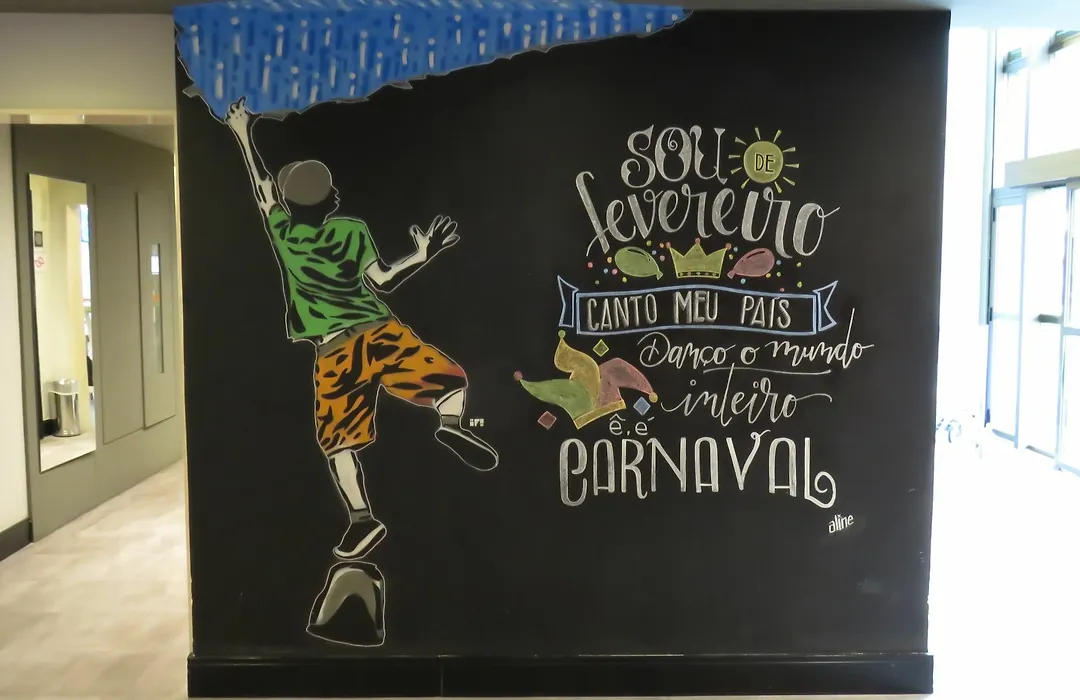 SOU DE
fevereiro
CANTO MEU PAÍS
Danço o mundo
inteiro
ê, ê
CARNAVAL
aline